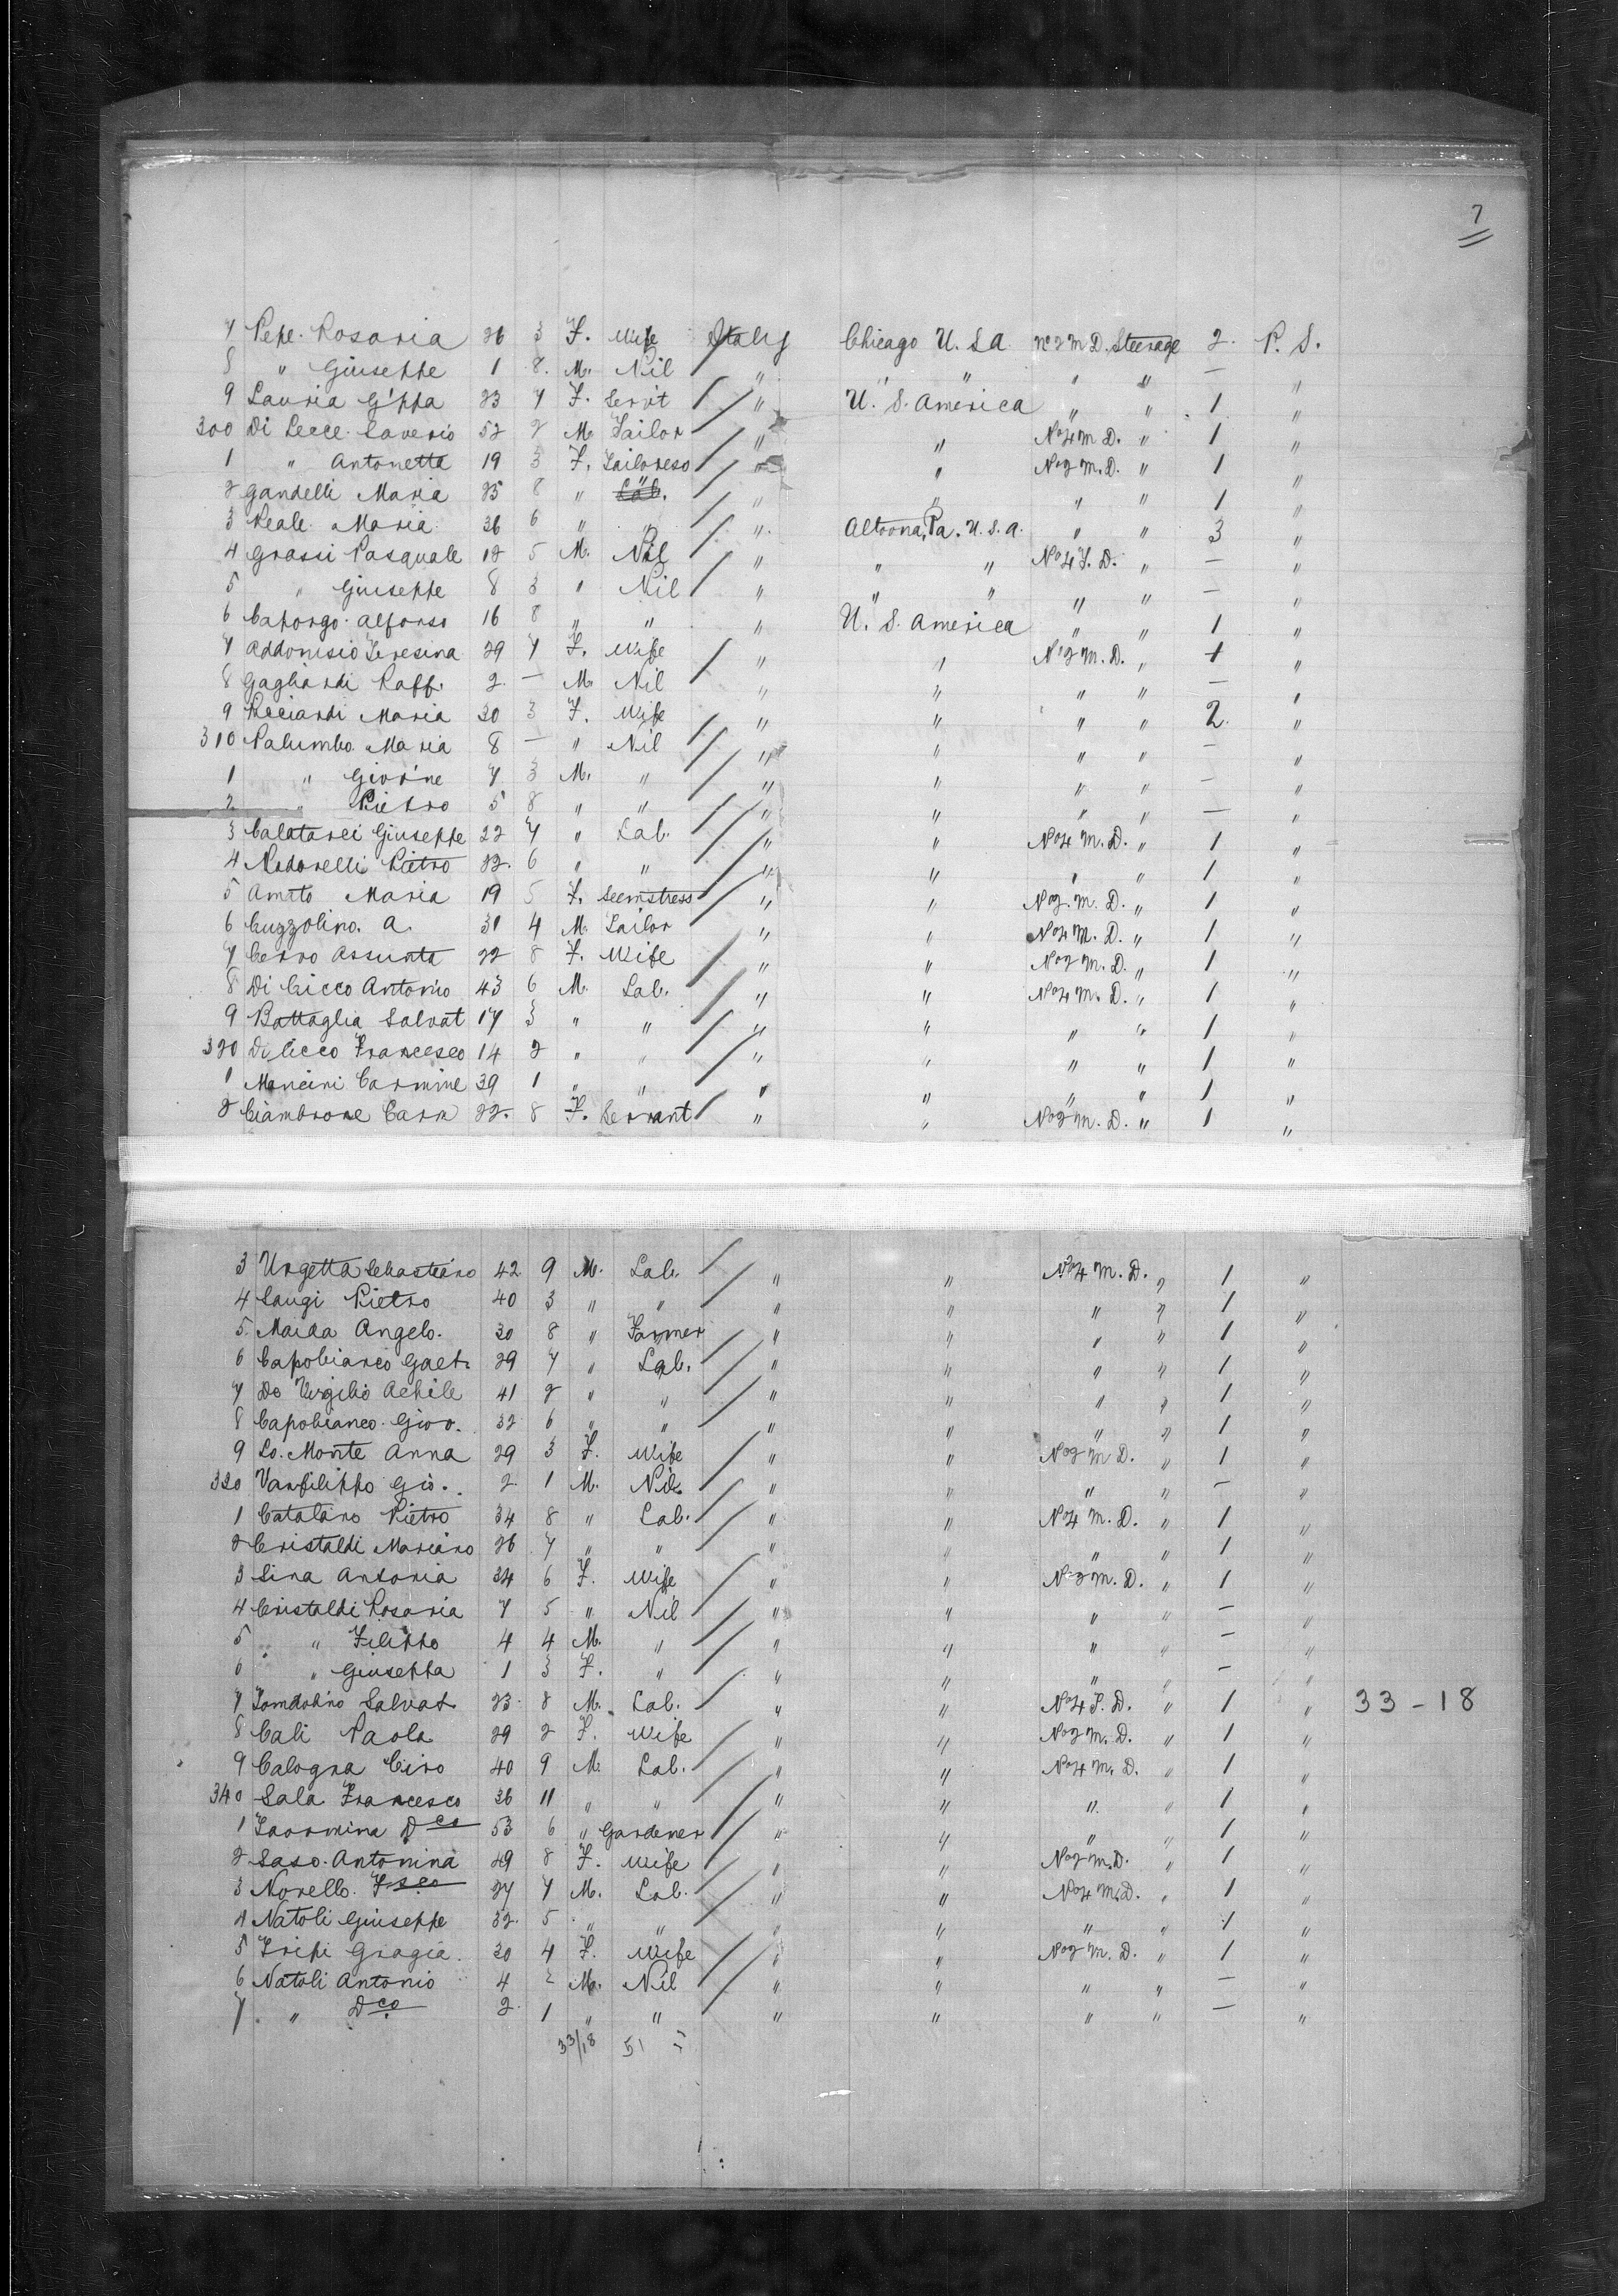 7
7 Pepe Rosaria 26 3 F. Wife Italy Chicago U. S. A. No 2 M D. Steerage 2. P. S.
8 " Giuseppe 1 8. M. Nil " " " " " — "
9 Lauria G'ppa 23 7 F. Serv't " U. S. America " " 1 "
300 Di Lecce Saverio 52 2 M. Tailor " " No 4 M D. " 1 "
1 " Antonetta 19 3 F. Tailoress " " No 2 M. D. " 1 "
2 Gandelli Maria 25 8 " Lab. " " " " 1 "
3 Reale Maria 36 6 " " " Altoona, Pa. U. S. A. " " 3 "
4 Grassi Pasquale 12 5 M. Nil " " " No 4 T. D. " — "
5 " Giuseppe 8 3 " Nil " " " " " — "
6 Caporgo Alfonso 16 8 " " " U. S. America " " 1 "
7 Addonisio Teresina 29 7 F. Wife " " No 2 M. D. " 1 "
8 Gagliardi Raff. 2 — M Nil " " " " — "
9 Ricciardi Maria 30 3 F. Wife " " " " 2. "
310 Palumbo Maria 8 — " Nil " " " " — "
1 " Giov'ne 7 3 M. " " " " " — "
2 " Pietro 5 8 " " " " " " — "
3 Calatarei Giuseppe 22 7 " Lab. " " No 4 M. D. " 1 "
4 Nadorelli Pietro 22. 6 " " " " " " 1 "
5 Amato Maria 19 5 F. Seemstress " " No 2. M. D. " 1 "
6 Cuzzolino. A. 31 4 M. Tailor " " No 4 M. D. " 1 "
7 Cerro Assunta 22 8 F. Wife " " No 2 M. D. " 1 "
8 Di Cicco Antonio 43 6 M. Lab. " " No 4 M. D. " 1 "
9 Battaglia Salvat 17 3 " " " " " " 1 "
320 Di Cicco Francesco 14 2 " " " " " " 1 "
1 Mancini Carmine 39 1 " " " " " " 1 "
2 Ciambrone Carm 22. 8 F. Servant " " No 2 M. D. " 1 "
3 Urgetta Sebastiano 42 9 M. Lab. " " No 4 M. D. " 1 "
4 Saugi Pietro 40 3 " " " " " " 1 "
5. Maida Angelo. 30 8 " Farmer " " " " 1 "
6 Capobianco Gaet. 29 7 " Lab. " " " " 1 "
7 De Virgilio Achile 41 2 " " " " " " 1 "
8 Capobianco Giov. 32 6 " " " " " " 1 "
9 Lo. Monte Anna 29 3 F. Wife " " No 2 M D. " 1 "
330 Vanfilippo Gio. 2 1 M. Nil. " " " " — "
1 Catalano Pietro 34 8 " Lab. " " No 4 M. D. " 1 "
2 Cristaldi Mariano 26 7 " " " " " " 1 "
3 Sina Antonia 24 6 F. Wife " " No 2 M. D. " 1 "
4 Cristaldi Rosaria 7 5 " Nil " " " " — "
5 " Filippo 4 4 M. " " " " " — "
6 " Giuseppa 1 3 F. " " " " " — "
7 Salvat. 23 8 M. Lab. " " No 4 T. D. " 1 " 33 - 18
8 Cali Paola 29 2 F. Wife " " No 2 M. D. " 1 "
9 Calogna Ciro 40 9 M. Lab. " " No 4 M. D. " 1 "
340 Sala Francesco 36 11 " " " " " " 1 "
1 Taormina Dco 53 6 " Gardener " " " " 1 "
2 Saso. Antonina 29 8 F. Wife " " No 2 M. D. " 1 "
3 Novello. Fsco 27 7 M. Lab. " " No 4 M. D. " 1 "
4 Natoli Giuseppe 32. 5 " " " " " " 1 "
5 Tripi Grazia. 30 4 F. Wife " " No 2 M. D. " 1 "
6 Natoli Antonio 4 2 M. Nil " " " " — "
7 " Dco 2 1 " " " " " " — "
33/18 51